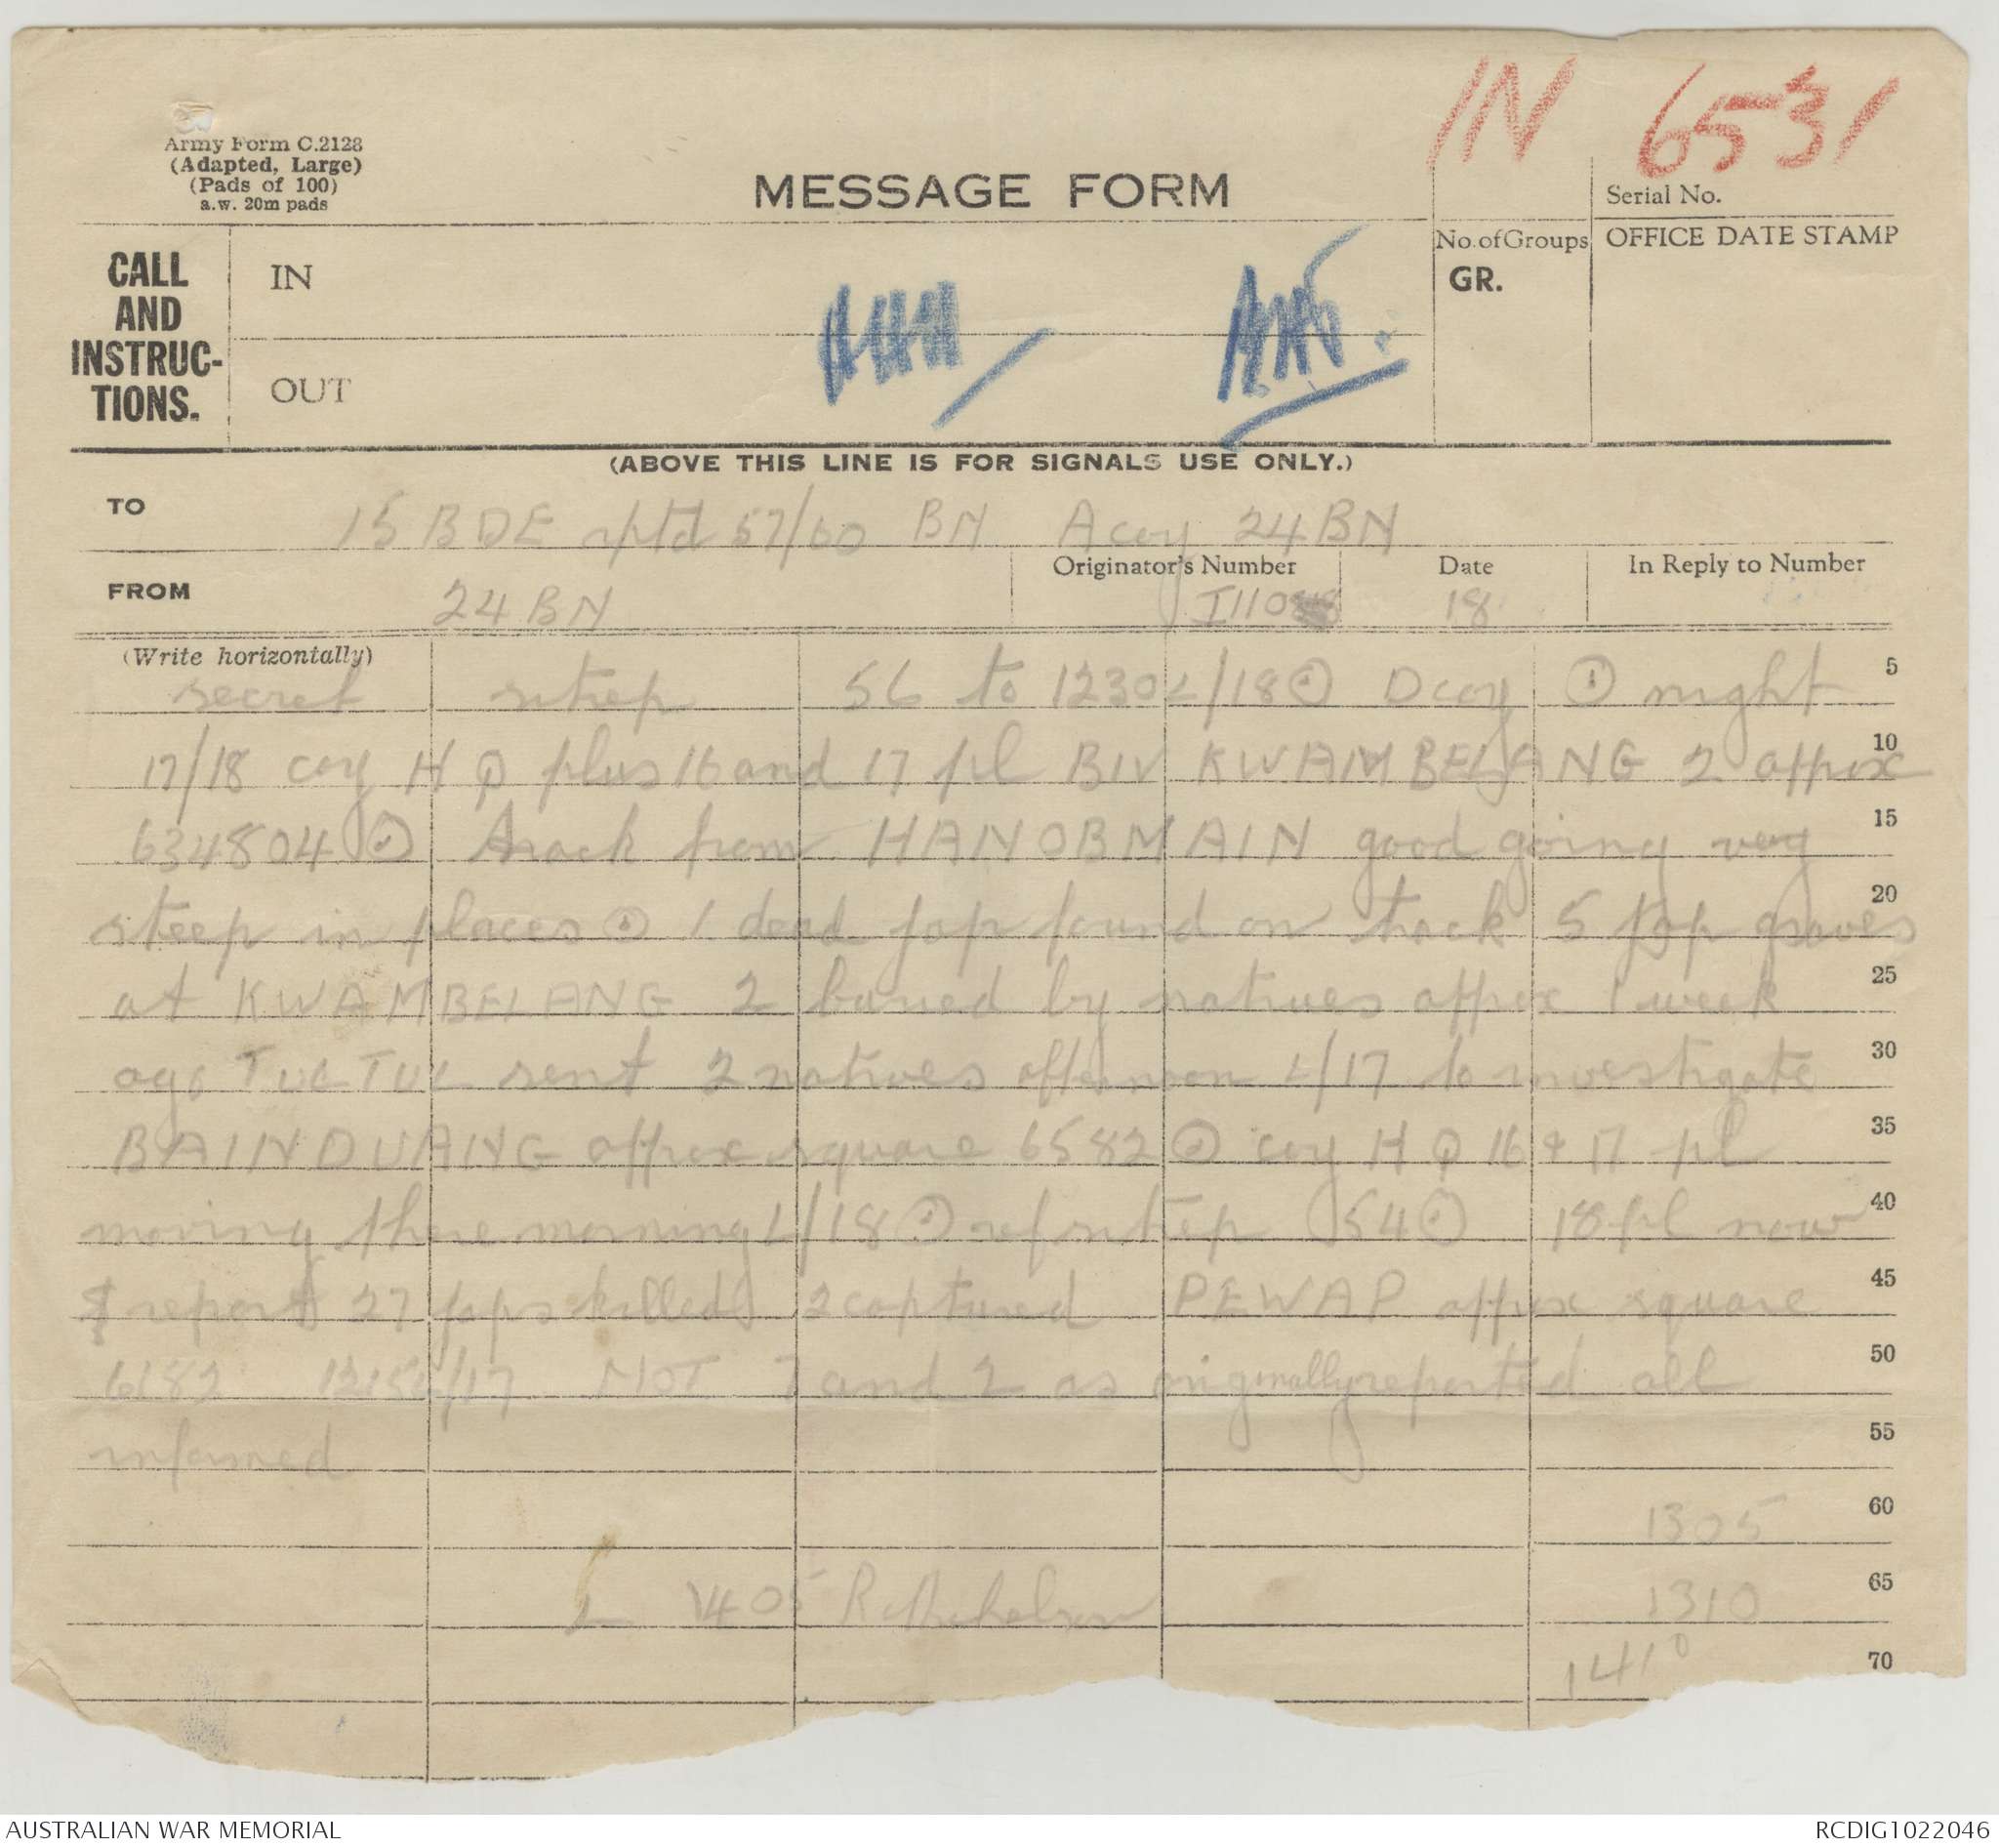 IN 6531
Army Form C.2128
(Adapted, Large)
(Pads of 100)
a.w. 20m pads
MESSAGE FORM
Serial No.
CALL AND INSTRUC-TIONS.
IN
OUT
No. of Groups
GR.
OFFICE DATE STAMP
(ABOVE THIS LINE IS FOR SIGNALS USE ONLY.)
TO 15 BDE rptd 57/60 BN A coy 24 BN
Originator's Number Date In Reply to Number
FROM 24 BN 18
(Write horizontally)
secret sitrep 56 to 1230L/18 ⊙ D coy ⊙ night 5
17/18 coy HQ plus 16 and 17 pl BIV KWAMBELANG 2 approx 10
634804 ⊙ Track from HANOBMAIN good going very 15
steep in places ⊙ 1 dead jap found on track 5 jap graves 20
at KWAMBELANG 2 buried by natives approx 1 week 25
ago TUL TUL sent 2 natives afternoon L/17 to investigate 30
BAINDUANG approx square 6582 ⊙ coy HQ 16 & 17 pl 35
moving there morning L/18 ⊙ ref sitrep 54 ⊙ 18 pl now 40
report 27 japs killed 2 captured PEWAP approx square 45
6182 1215L/17 NOT 7 and 2 as originally reported all 50
informed
55
1305 60
1405 1310 65
1410 70
AUSTRALIAN WAR MEMORIAL
RCDIG1022046